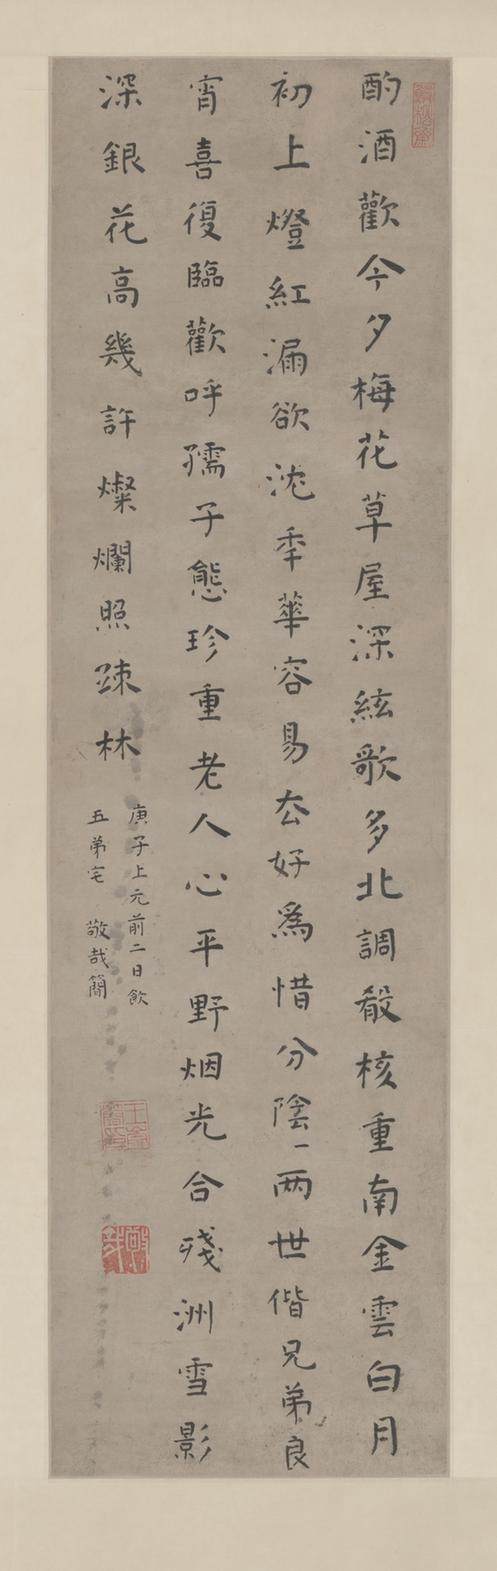 酌酒歡今夕梅花草屋深絃歌多北調殽核重南金雲白月
初上燈紅漏欲沈季華容易厺好爲惜分陰一兩世偕兄弟良
宵喜復臨歡呼孺子態珍重老人心平野烟光合殘洲雪影
深銀花高幾許燦爛照踈林
庚子上元前二日飲
五弟宅 敬哉簡